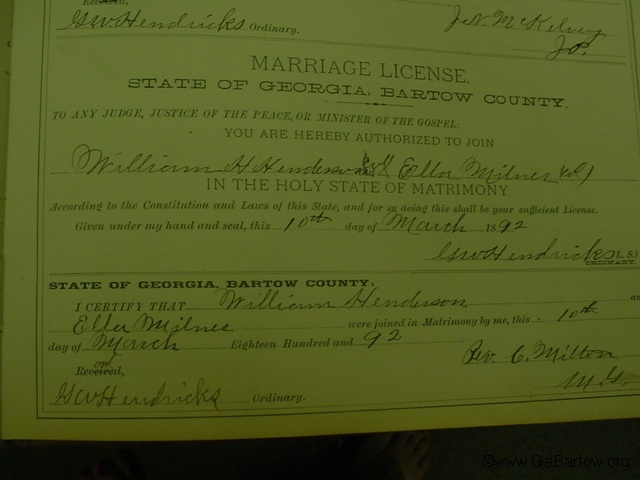 Received,
GW Hendricks Ordinary. J. N. McKelvey
J.P.
MARRIAGE LICENSE.
STATE OF GEORGIA, BARTOW COUNTY.
TO ANY JUDGE, JUSTICE OF THE PEACE, OR MINISTER OF THE GOSPEL:
YOU ARE HEREBY AUTHORIZED TO JOIN
William H Henderson & Ella Milner (col)
IN THE HOLY STATE OF MATRIMONY
According to the Constitution and Laws of this State, and for so doing this shall be your sufficient License.
Given under my hand and seal, this 10th day of March 1892
GW Hendricks [L. S.]
ORDINARY.
STATE OF GEORGIA, BARTOW COUNTY.
I CERTIFY THAT William Henderson an
Ella Milner were joined in Matrimony by me, this 10th
day of March Eighteen Hundred and 92
Rev. C. Milton
M.G.
Received,
GW Hendricks Ordinary.
©www.GaBartow.org